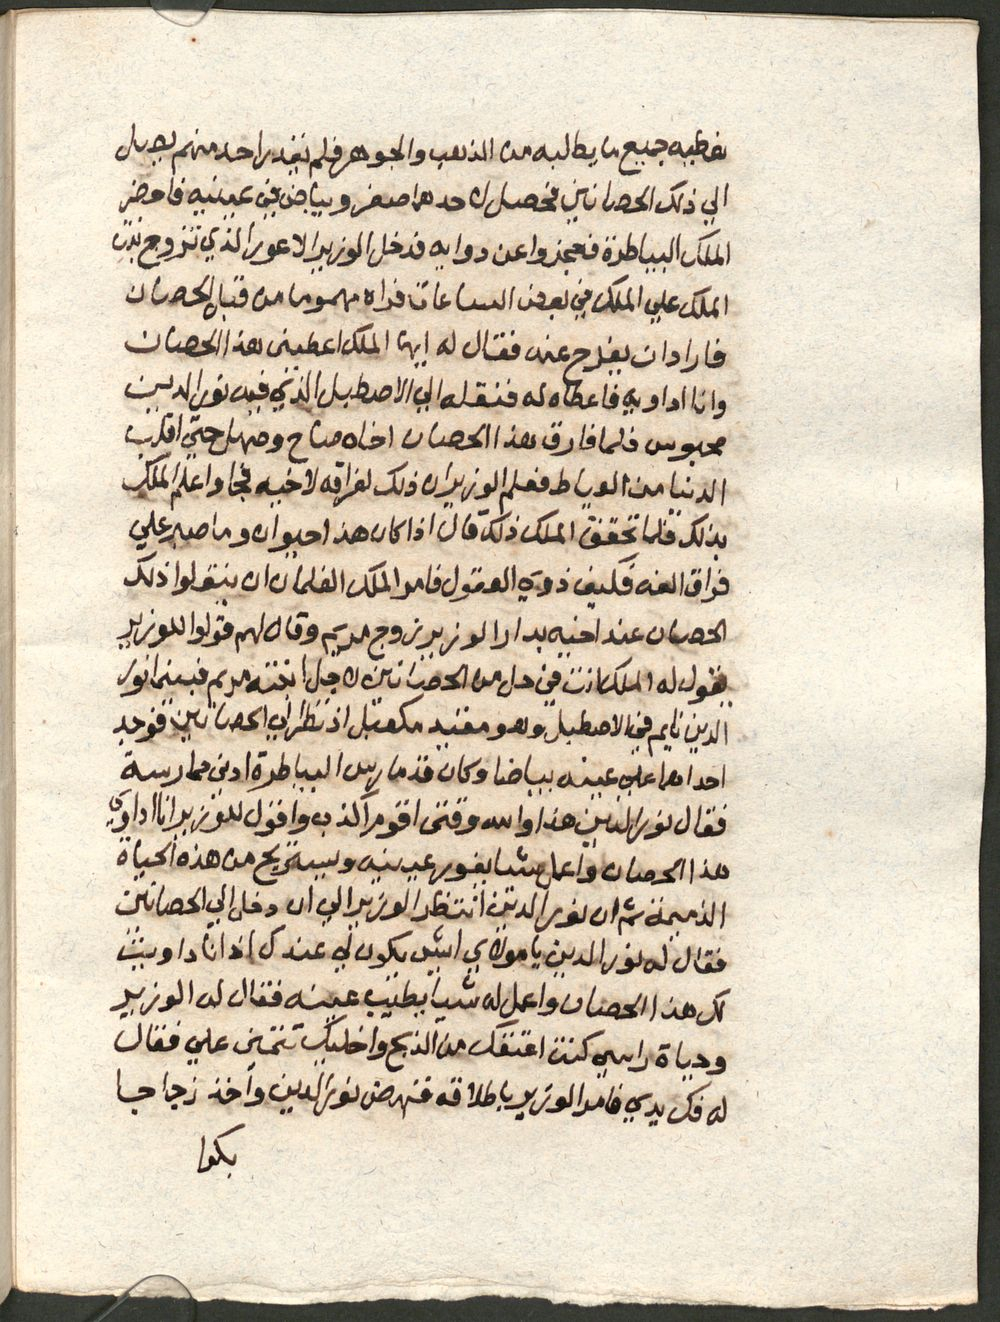 نعطيه جميع ما يطالبه من الذهب والجوهر فلم يقدر احد منهم يصل
الي ذلك الحصانين فحصل لاحدهما صفر وبياض في عينيه فاحضر
الملك البياطرة فعجزوا عن دوايه فدخل الوزير الاعور الذي تزوج بنت
الملك علي الملك في بعض الساعات فراه مهموما من قبل الحصان
فاراد ان يفرج عنه فقال له ايها الملك اعطيني هذا الحصان
وانا اداويه فاعطاه له فنقله الي الاصطبل الذي فيه نور الدين
محبوس فلما فارق هذا الحصان اخاه صاح وصهل حتي اقلب
الدنيا من العياط فعلم الوزير ان ذلك لفراقه لاخيه فجا واعلم الملك
بذلك فلما تحقق الملك ذلك قال اذا كان هذا حيوان وما صبر علي
فراق الفه فكيف ذوي العقول فامر الملك الغلمان ان ينقلوا ذلك
الحصان عند اخيه بدار الوزير زوج مريم وقال لهم قولوا للوزير
يقول له الملك انت في حل من الحصانين لاجل ابنته مريم فبينما نور
الدين نايم في الاصطبل وهو مقيد مكعبل اذ نظر الي الحصانين فوجد
احداهما علي عينه بياضا وكان قد مارس البياطرة ادني ممارسة
فقال نور الدين هذا والله وقتي اقوم اكذب واقول للوزير انا اداوي
هذا الحصان واعمل شيا يغور عينيه ونستريح من هذه الحياة
الذميمة ثم ان نور الدين انتظر الوزير الي ان دخل الي الحصانين
فقال له نور الدين يا مولاي ايش يكون لي عندك اذ انا داويت
لك هذا الحصان واعمل له شيا يطيب عينه فقال له الوزير
وحياة راسي كنت اعتقك من الذبح واخليك تتمني علي فقال
له فك يدي فامر الوزير باطلاقه فنهض نور الدين واخذ زجاجا
بكرا